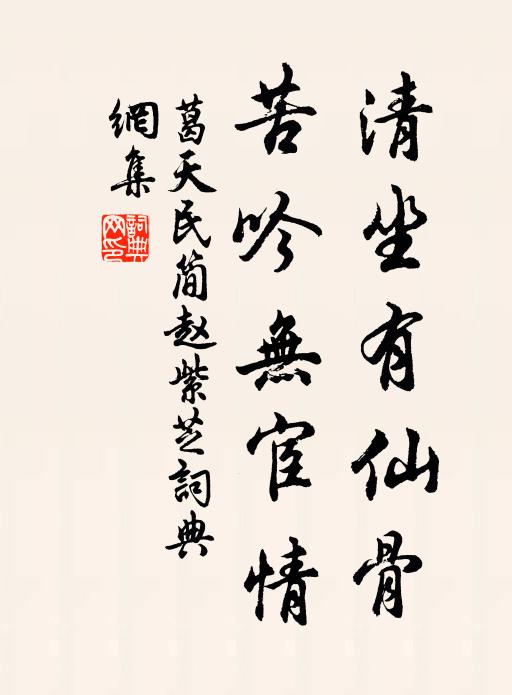 清坐有仙骨
苦吟無宦情
葛天民简赵紫芝詞典
網集
詞典
网印